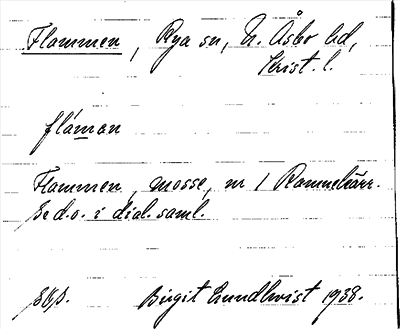 Flammen, Rya sn, N. Åsbo hd,
Krist. l.
flámən
Flammen, mosse, nr 1 Rammekärr.
Se d.o. i dial. saml.
Birgit Lundkvist 1938.